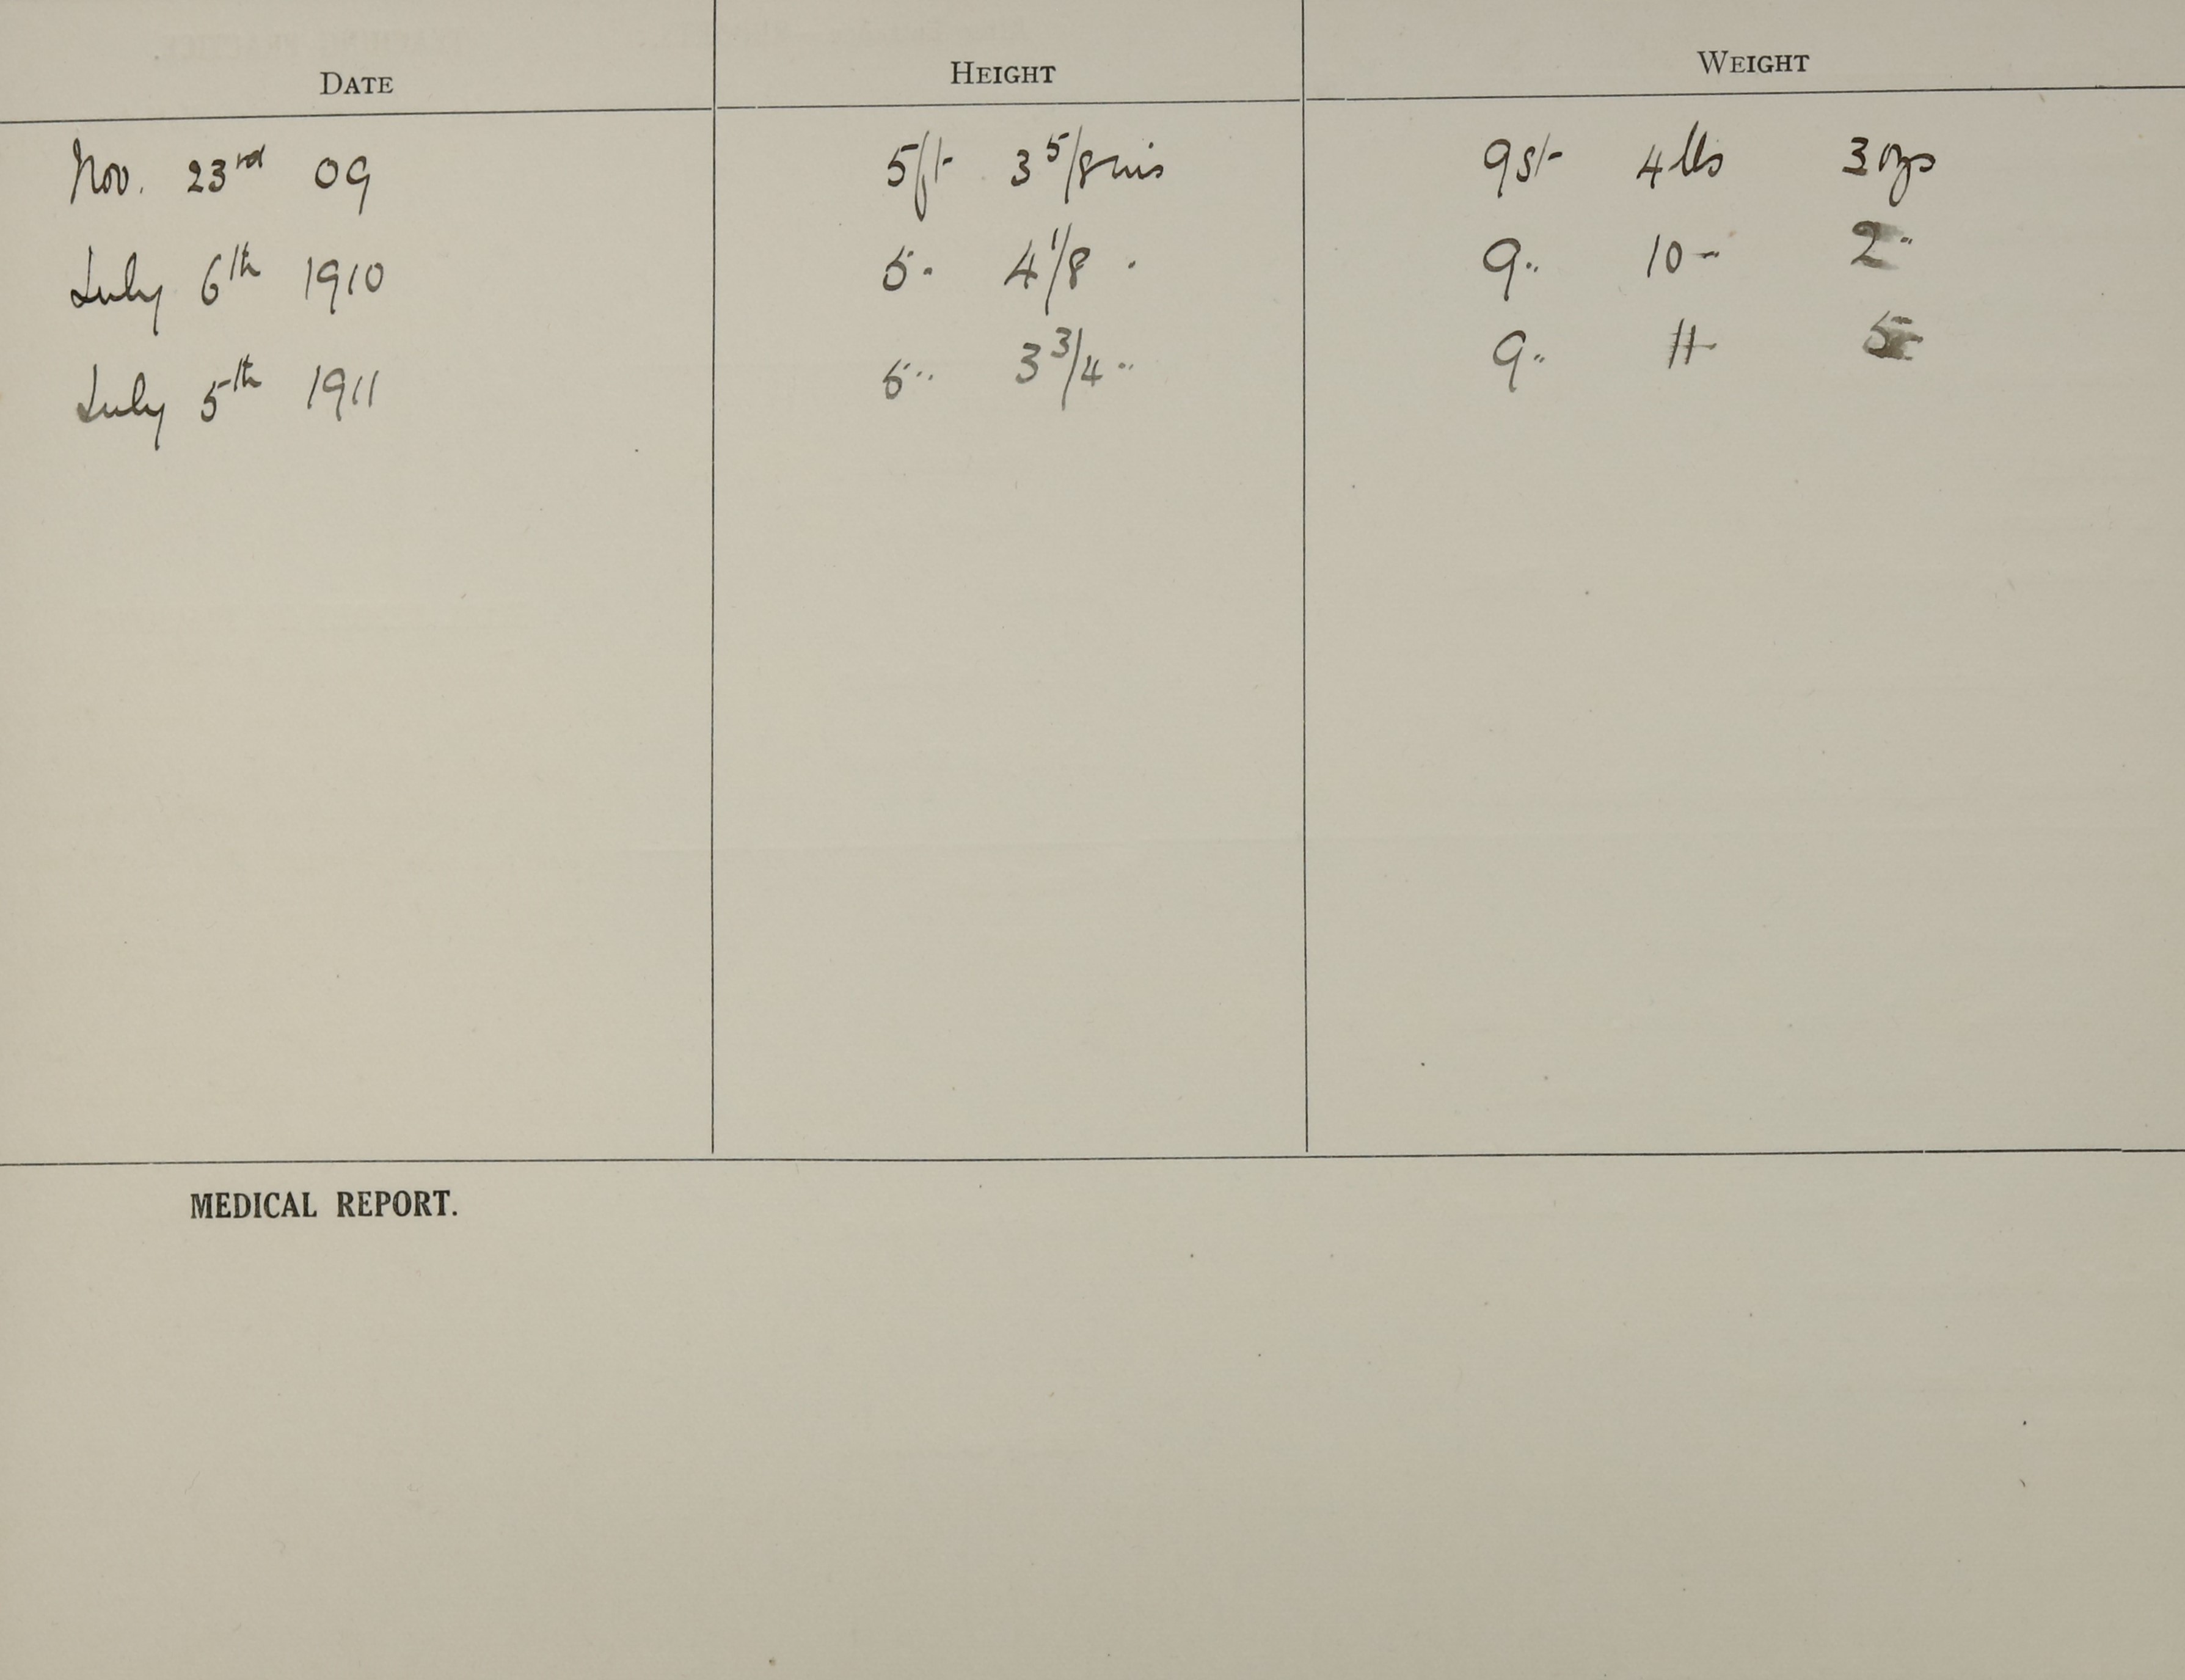 DATE HEIGHT WEIGHT
Nov. 23rd 09 5ft 3 5/8 ins 9st 4 lbs 3 ozs
July 6th 1910 5 " 4 1/8 " 9 " 10 " 2 "
July 5th 1911 5 " 3 3/4 " 9 " 11 " 5 "
MEDICAL REPORT.